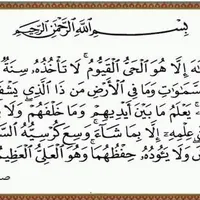 بِسْمِ اللَّهِ الرَّحْمَٰنِ الرَّحِيمِ
إِلَّا هُوَ الْحَيُّ الْقَيُّومُ ۚ لَا تَأْخُذُهُ سِنَةٌ
السَّمَٰوَٰتِ وَمَا فِي الْأَرْضِ مَن ذَا الَّذِي
يَعْلَمُ مَا بَيْنَ أَيْدِيهِمْ وَمَا خَلْفَهُمْ ۖ وَلَا
عِلْمِهِ إِلَّا بِمَا شَاءَ ۚ وَسِعَ كُرْسِيُّهُ
وَلَا يَئُودُهُ حِفْظُهُمَا ۚ وَهُوَ الْعَلِيُّ الْعَظِيمُ